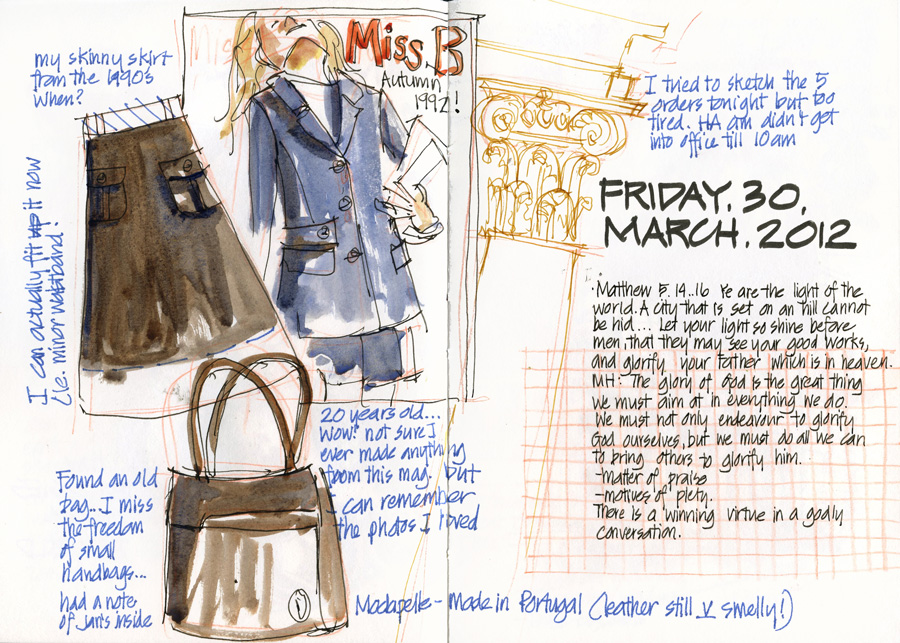 my skinny skirt
from the 1990's
when?
I can actually fit it now
(ie. minor waistband!
Miss B
Autumn
1992!
20 years old...
wow! not sure I
ever made anything
from this mag. but
I can remember
the photos I loved
Found an old
bag.. I miss
the freedom
of small
handbags...
had a note
of Jan's inside
Madapelle - Made in Portugal (leather still v smelly!)
I tried to sketch the 5
orders tonight but too
tired. HA am didn't get
into office till 10am
FRIDAY. 30.
MARCH. 2012
Matthew 5. 14..16 Ye are the light of the
world. A city that is set on an hill cannot
be hid... Let your light so shine before
men, that they may see your good works,
and glorify your father which is in heaven.
MH: The glory of God is the great thing
we must aim at in everything we do.
We must not only endeavour to glorify
God ourselves, but we must do all we can
to bring others to glorify him.
-matter of praise
-motives of piety.
There is a winning virtue in a godly
conversation.